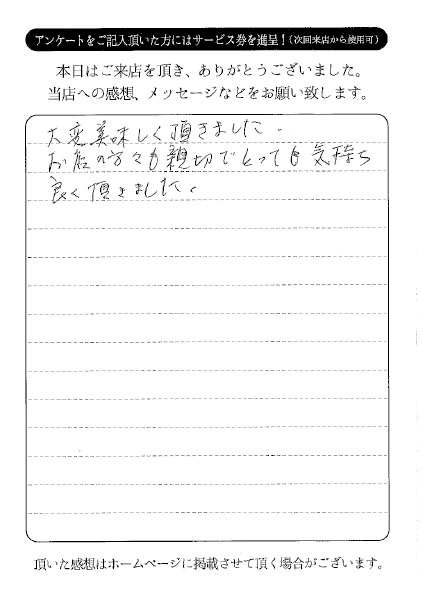 アンケートをご記入頂いた方にはサービス券を進呈！（次回来店から使用可）
本日はご来店を頂き、ありがとうございました。
当店への感想、メッセージなどをお願い致します。
大変美味しく頂きました。
お店の方々も親切でとっても気持ち
良く頂きました。
頂いた感想はホームページに掲載させて頂く場合がございます。